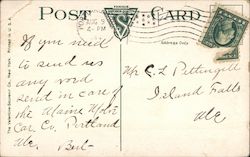 POST CARD
AUG 5
4-PM
Address Only
If you need
to send us
any word
send in care of
the Maine Motor
Car Co. Portland
Me. Bert-
Mr C. L. Pettengill
Island Falls
Me
The Valentine-Souvenir Co., New York. Printed in U.S.A.